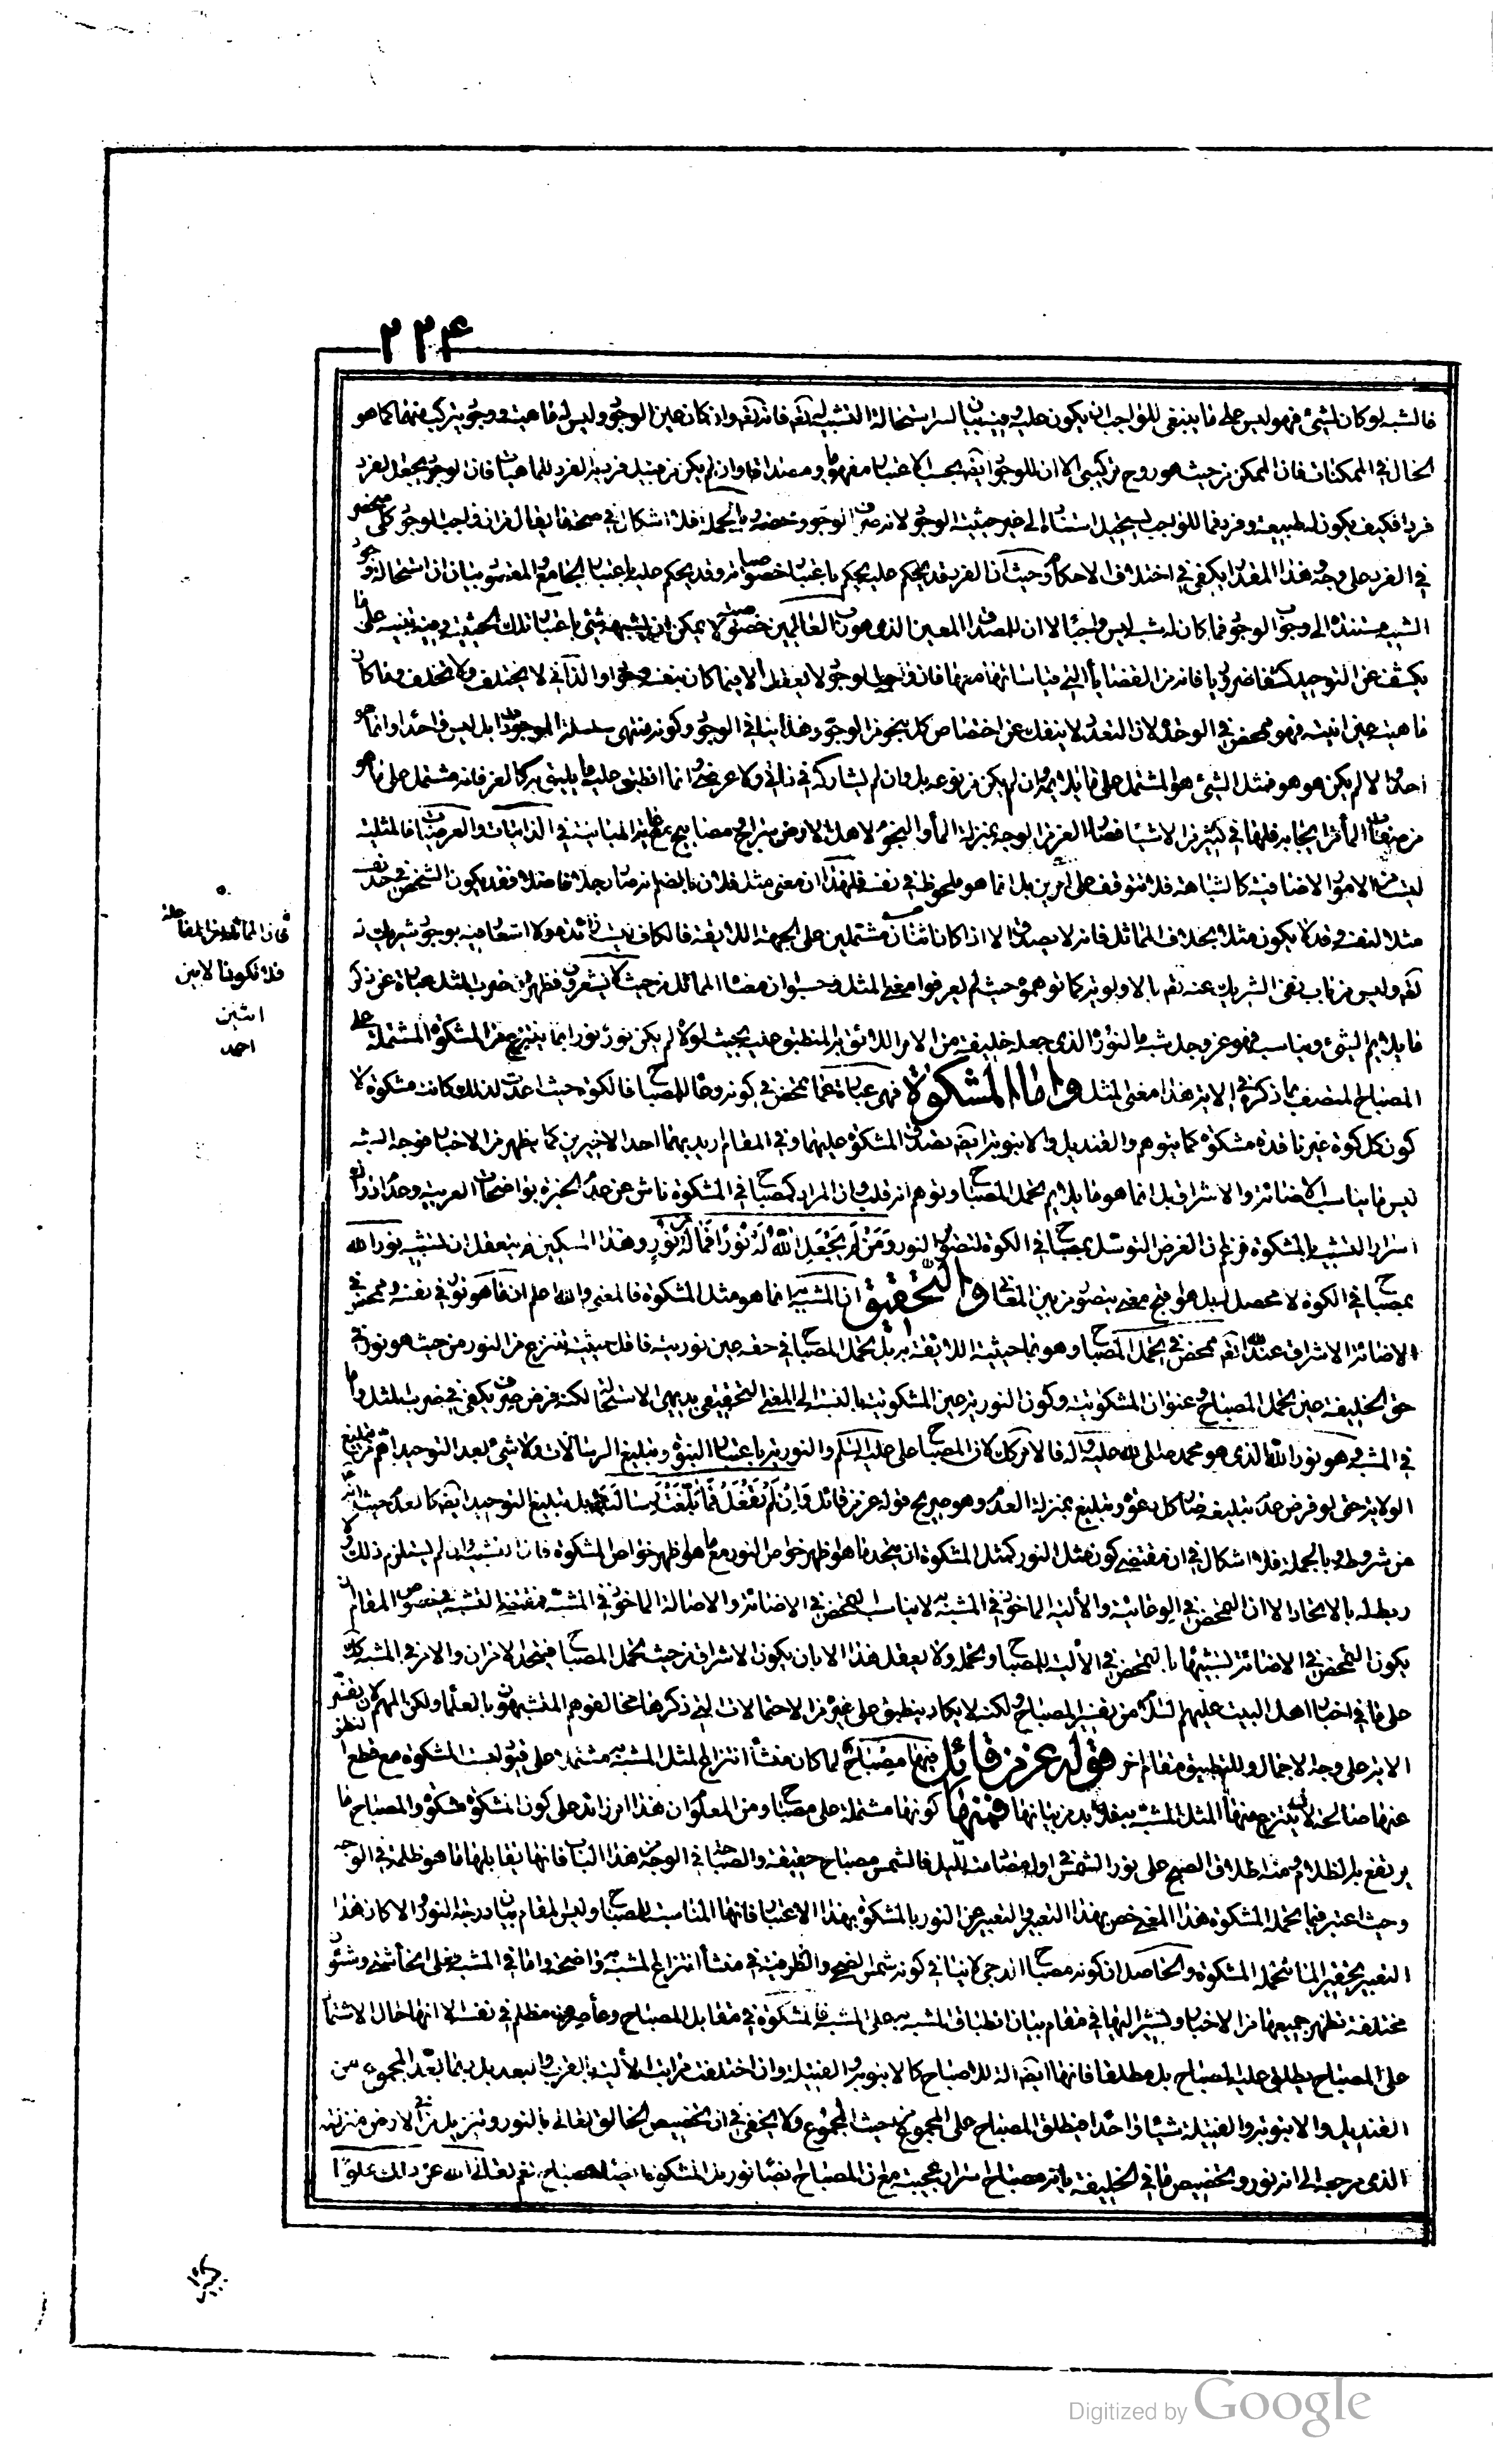 ٢٢۴
فالشبه لو كان لشئ فهو ليس على ما ينبغى للواجب ان يكون عليه
الحال فى الممكنات فان الممكن من حيث هو زوج تركيبى الا ان للوجود ايضا بحسب الاعتبار مفهوما ومصداقا وان لم يكن من قبيل فردية الفرد للماهيات فان الوجود يجعل الفرد
فردا فكيف يكون له طبيعة وفرد فما للواجب يستحيل استناده الى غير حيثية الوجود لانه صرف الوجود ومحضه وبالجملة فلا اشكال فى صحة ما يقال من ان واجب الوجود كلى منحصر
فى الفرد على وجه هذا المقدار يكفى فى اختلاف الاحكام وحيث ان الفرد قد يحكم عليه يحكم باعتبار خصوصياته وقد يحكم عليه باعتبار الجامع
الشبيه مستندة الى وجوب الوجود فما كان له شبه ليس واجبا الا ان للمصداق المعين الذى هو رب العالمين خصوصية لا يمكن ان يشبهه شئ باعتبار تلك الحيثية
يكشف عن التوحيد كشفا ضروريا فانه من القضايا التى قياساتها معها فان واجب الوجود لا يعقل الا فيما كان بنفسه وجودا والذاتى لا يختلف ولا يتخلف وما كان
ماهيته عين انيته فهو متمحض فى الوحدة لان التعدد لا ينفك عن اختصاص كل بنحو من الوجود وهذا ينافى الوجود وكونه منتهى سلسلة الموجودات بل ليس واحدا وانما هو
احد والا لم يكن هو هو فمثل الشئ هو المشتمل على ما يلايمه وان لم يكن من نوعه بل وان لم يشاركه فى ذاتى ولا عرضى وانما انطبق عليه ما يليق به كالعرفانه مشتمل على ما هو
من صفات المأثر
ليست من الامور الاضافية كالشباهة فلا تتوقف على امرين بل انما هو ملحوظ فى نفسه فلهذا ان معنى مثل فلان بالضم انه صار رجلا فاضلا فقد يكون الشخص فى حد نفسه
مثلا لنفسه وقد لا يكون مثلا بخلاف التماثل فانه لا يصدق الا اذا كان اثنان مشتملين على الجهة اللايقة فالكاف ليست زائدة ولا اشعار فيه بوجود شريك له
تعالى وليس من باب نفى الشريك عنه تعالى بالاولوية كما توهموه حيث لم يعرفوا معنى المثل وحسبوا انه مضاد المماثل من حيث لا يشعرون فظهر ان ضرب المثل عبارة عن ذكر
ما يلايم الشئ ويناسبه فهو عز وجل شبه النور الذى جعله خليفته من الامر اللائق به المنطبق عليه بحيث لولاه لم يكن نوره نورا بما ينتزع من المشكوة المشتملة على
المصباح المتصف بما ذكره فى الاية هذا معنى المثل واما المشكوة فهى عبارة عما تمحض فى كونه وعاء للمصباح فالكوة حيث اعدت لذلك كانت مشكوة لا
كون كل كوة غير نافذة مشكوة كما يتوهم والقنديل والانبوبة ايضا يصدق المشكوة عليهما وفى المقام اريد بهما احد الاخيرين كما يظهر من الاخبار فوجه الشبه
ليس ما يناسب الاضائة والاشراق بل انما هو ما يلايم تحمل المصباح وتوهم انه قلب وان المراد كمصباح فى المشكوة ناش عن عدم الخبرة بواضحات العربية وعدم ادراك
اسرار التشبيه بالمشكوة فزعم ان الغرض التوسل بمصباح فى الكوة لتصوير النور وَمَنْ لَمْ يَجْعَلِ اللهُ لَهُ نُورًا فَمَا لَهُ مِنْ نُورٍ وهذا المسكين لم يتعقل ان تشبيه نور الله
بمصباح فى الكوة لا محصل له بل هو اقبح معنى يتصور من بين المعانى والتحقيق ان المشبه به انما هو مثل المشكوة فالمعنى والله اعلم ان ما هو نور فى نفسه ومتمحض فى
الاضائة والاشراق عند الله تعالى متمحض فى تحمل المصباح وهو بما حيثيته اللايقة به بل تحمل المصباح فى حقه عين نوريته فاقل حيثية تنتزع من النور من حيث هو نور فى
حق الخليفة عين تحمل المصباح وعنوان المشكوتية وكون النورية عين المشكوتية بالنسبة الى المعنى الحقيقى بديهى الاستحالة لكنه فرض صرف يكفى فى ضرب المثل واما
فى المشبه وهو نور الله الذى هو محمد صلى الله عليه واله فالامر كك لان المصباح على عليه السلم والنورية باعتبار النبوة وتبليغ الرسالات ولا شئ بعد التوحيد اهم من تبليغ
الولاية حتى لو فرض عدم تبليغه صار كل دعوة وتبليغ بمنزلة العدم وهو صريح قوله عز من قائل وَاِنْ لَمْ تَفْعَلْ فَمَا بَلَّغْتَ رِسَالَتَهُ بل تبليغ التوحيد ايضا كالعدم حيث انه
من شروطه وبالجملة فلا اشكال فى ان مقتضى كون مثل النور كمثل المشكوة ان يتحد ما هو اظهر خواص النور مع ما هو اظهر خواص المشكوة
ربط له بالاتحاد الا ان التمحض فى الوعائية والآلية الماخوذ فى المشبه به لا يناسب التمحض فى الاضائة والاصالة الماخوذ فى المشبه فمقتضى التشبيه فى خصوص المقام ان
يكون التمحض فى الاضائة لتشبيهها بالتمحض فى الآلية للمصباح وتحمله ولا يعقل هذا الا بان يكون الاشراق من حيث تحمل المصباح فيتحد الامران والامر فى المشبه كك
على ما فى اخبار اهل البيت عليهم السلام من تفسير المصباح ولكنه لا يكاد ينطبق على غيره من الاحتمالات التى ذكرها مخالفوهم المتشبهون بالعلماء ولكن المهم الان تفسير
الاية على وجه الاجمال وللتطبيق مقام اخر قوله عز من قائل فِيهَا مِصْبَاحٌ لما كان منشأ انتزاع المثل المشبه به مشتملة على قيود ليست المشكوة مع قطع النظر
عنها صالحة لان ينتزع منها المثل المشبه به فلا بد من بيانها فمنها كونها مشتملة على مصباح ومن المعلوم ان هذا امر زائد على كون المشكوة مشكوة والمصباح ما
يرتفع به الظلام ومنه اطلاق الصبح على نور الشمس فى اول مضامنه الليل فالشمس مصباح حقيقة والصباحة فى الوجه من هذا الباب فانها يقابلها ما هو ظلمة فى الوجه
وحيث اعتبر فيما تحمله المشكوة هذا المعنى خص بهذا التعبير والتعبير عن النور بالمشكوة بهذا الاعتبار فانها المناسبة للمصباح وليس المقام بيان درجة النور والا كان هذا
التعبير تحقيرا لما تحمله المشكوة والحاصل ان كونه مصباح الدجى لا ينافى كونه شمس الضحى والظرفية فى منشأ انتزاع المشبه به واضحة واما فى المشبه فعلى انحاء شتى وشئون
مختلفة تظهر جميعها من الاخبار ونشير اليها فى مقام بيان انطباق المشبه به على المشبه فالمشكوة فى مقابل المصباح مظلم فى نفسه الا انها حال الاشتمال
على المصباح يطلق عليه المصباح بل مطلقا فانها ايضا الة للاصباح كالانبوبة والفتيلة وان اختلفت مراتب الآلية بالقرب والبعد بل ربما يعد المجموع من
القنديل والانبوبة والفتيلة شيئا واحدا فيطلق المصباح على المجموع من حيث المجموع ولا يخفى فى ان تخصيص الخالق تعالى بالنور وتنزيل من فى الارض منزلته
الذى مرجعه الى انه نور وتخصيص ما فى الخليفة بانه مصباح اسرار عجيبة مع ان المصباح
فان المماثلة من المفاعلة
فلا تكون الا بين
اثنين
احمد
Digitized by Google